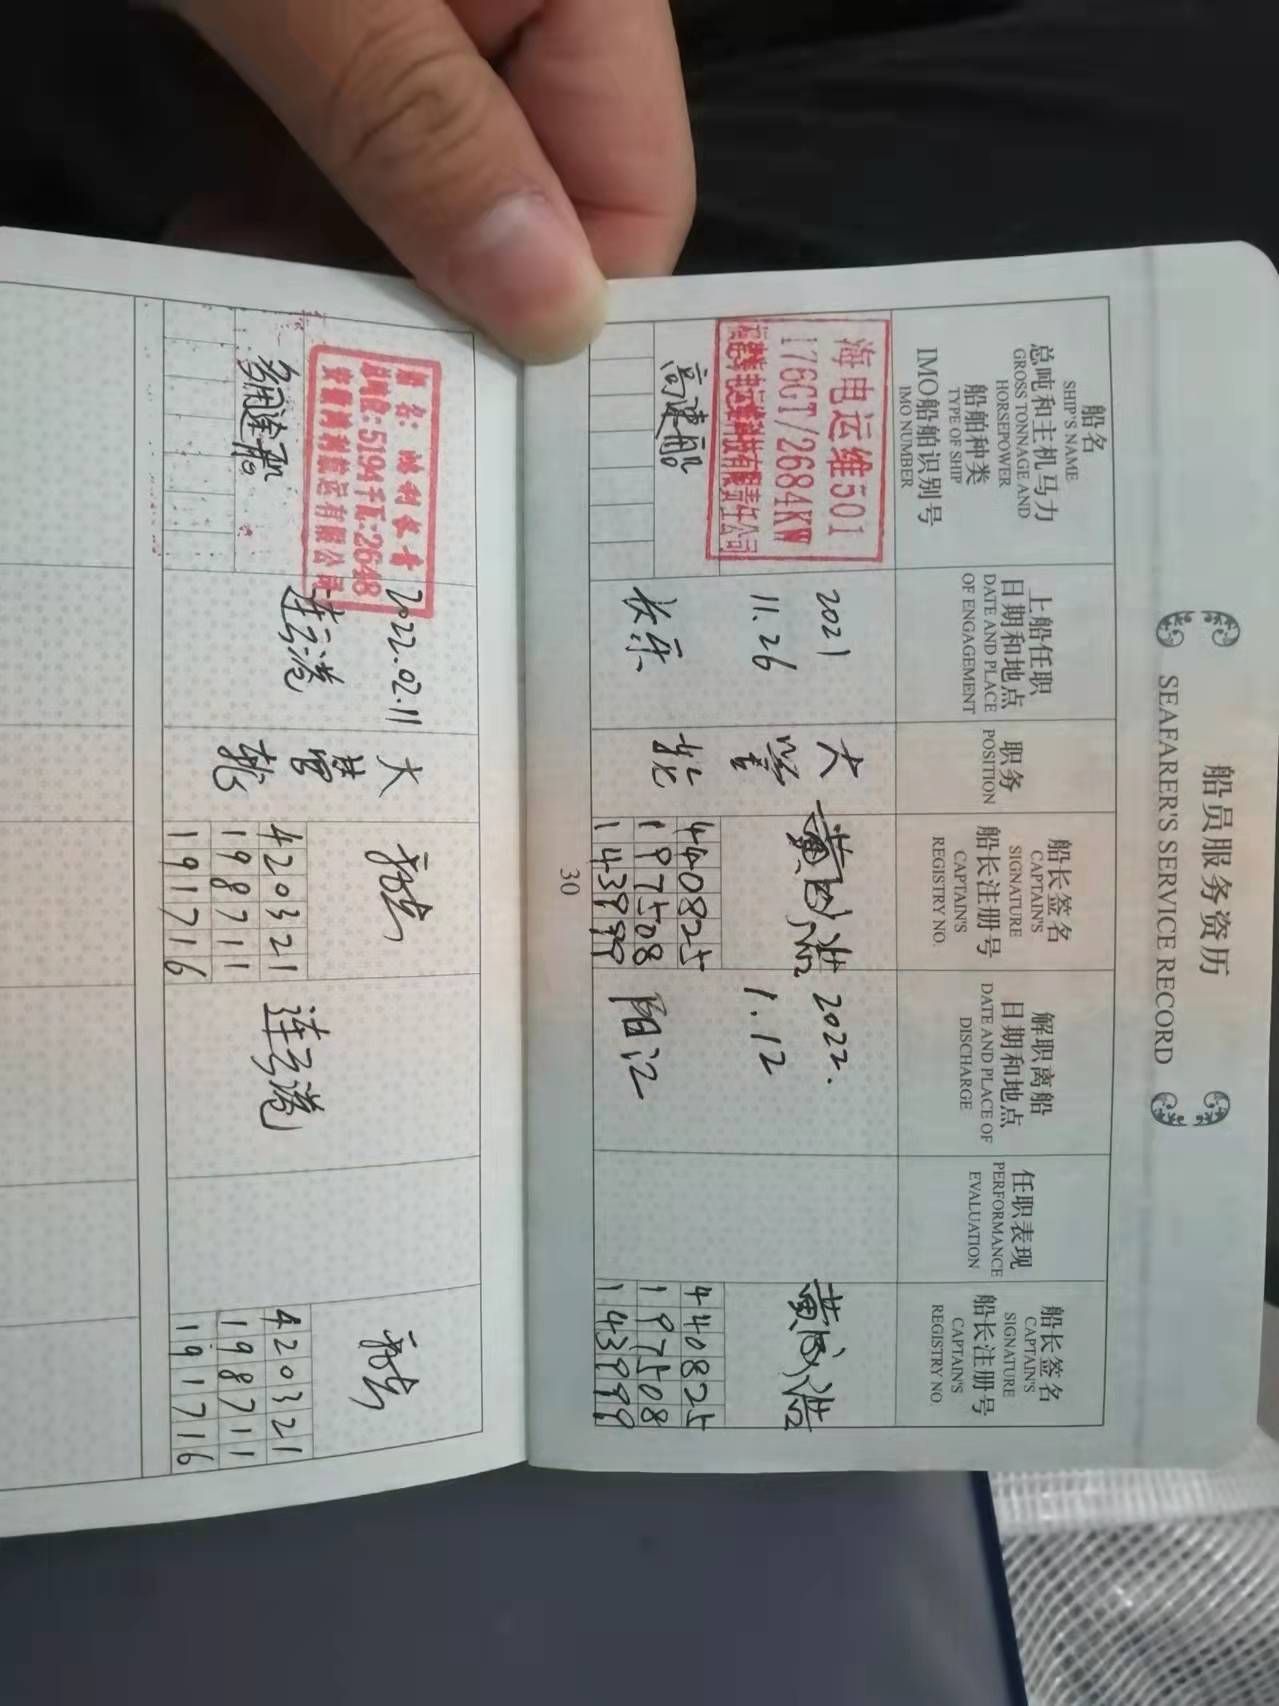 船员服务资历
SEAFARER'S SERVICE RECORD
船名
SHIP'S NAME
总吨和主机马力
GROSS TONNAGE AND
HORSEPOWER
船舶种类
TYPE OF SHIP
IMO船舶识别号
IMO NUMBER
上船任职
日期和地点
DATE AND PLACE
OF ENGAGEMENT
职务
POSITION
船长签名
CAPTAIN'S
SIGNATURE
船长注册号
CAPTAIN'S
REGISTRY NO.
解职离船
日期和地点
DATE AND PLACE OF
DISCHARGE
任职表现
PERFORMANCE
EVALUATION
船长签名
CAPTAIN'S
SIGNATURE
船长注册号
CAPTAIN'S
REGISTRY NO
海电运维501
176GT/2684KW
电运维科技有限责任公司
高速船
2021
11.26
长乐
大
管
轮
440825
197508
143999
2022.
1.12
阳江
440825
197508
143999
30
船名:
总吨位:5194千瓦:2648
航运有限公司
多用途船
2022.02.11
连云港
大
管
轮
420321
198711
191716
连云港
420321
198711
191716